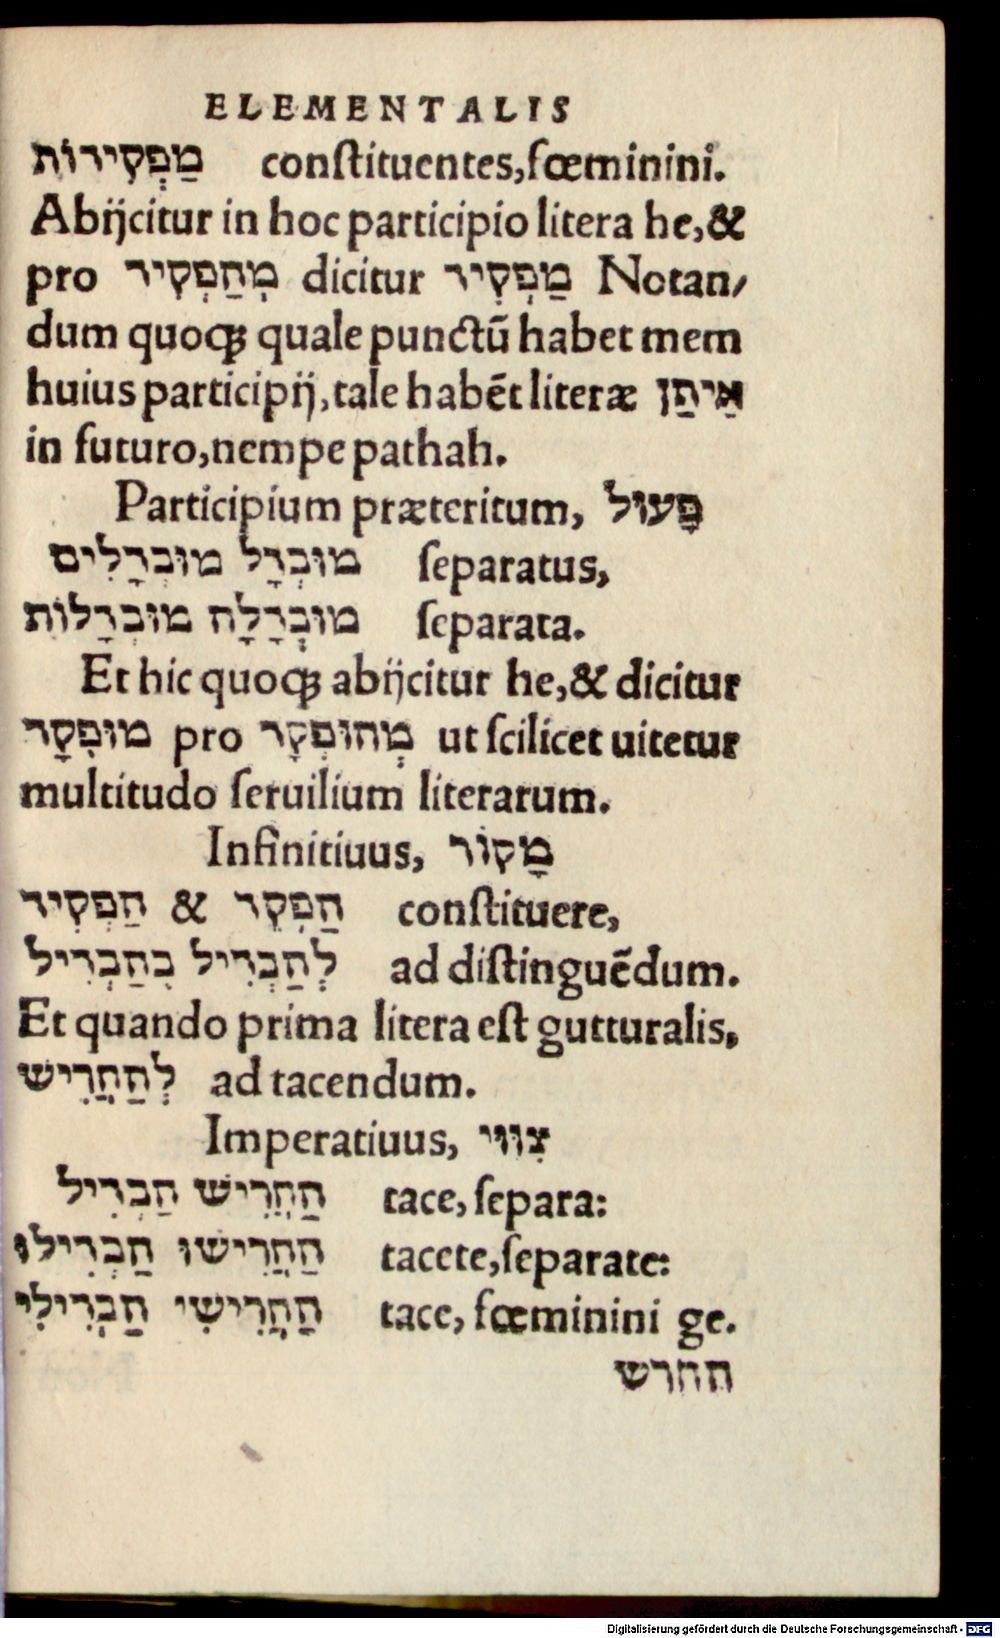 ELEMENTALIS
מַפְקִירוֹת conſtituentes, fœminini.
Abijcitur in hoc participio litera he, &
pro מְהַפְקִיר dicitur מַפְקִיר Notan/
dum quoqꝫ quale punctū habet mem
huius participij, tale habēt literæ אַיתַן
in futuro, nempe pathah.
Participium præteritum, פָּעוּל
מוּבְדָל מוּבְדָלִים ſeparatus,
מוּבְדָלָה מוּבְדָלוֹת ſeparata.
Et hic quoqꝫ abijcitur he, & dicitur
מוּפְקָר pro מְהוּפְקָר ut ſcilicet uitetur
multitudo ſeruilium literarum.
Infinitiuus, מָקוֹר
הַפְקֵר & הַפְקִיר conſtituere,
לְהַבְדִיל בְהַבְדִיל ad diſtinguēdum.
Et quando prima litera eſt gutturalis,
לְהַחֲרִישׁ ad tacendum.
Imperatiuus, צִוּוּי
הַחֲרִישׁ הַבְדִיל tace, ſepara:
הַחֲרִישׁוּ הַבְדִילוּ tacete, ſeparate:
הַחֲרִישִׁי הַבְדִילִי tace, fœminini ge.
החרש
Digitalisierung gefördert durch die Deutsche Forschungsgemeinschaft - DFG